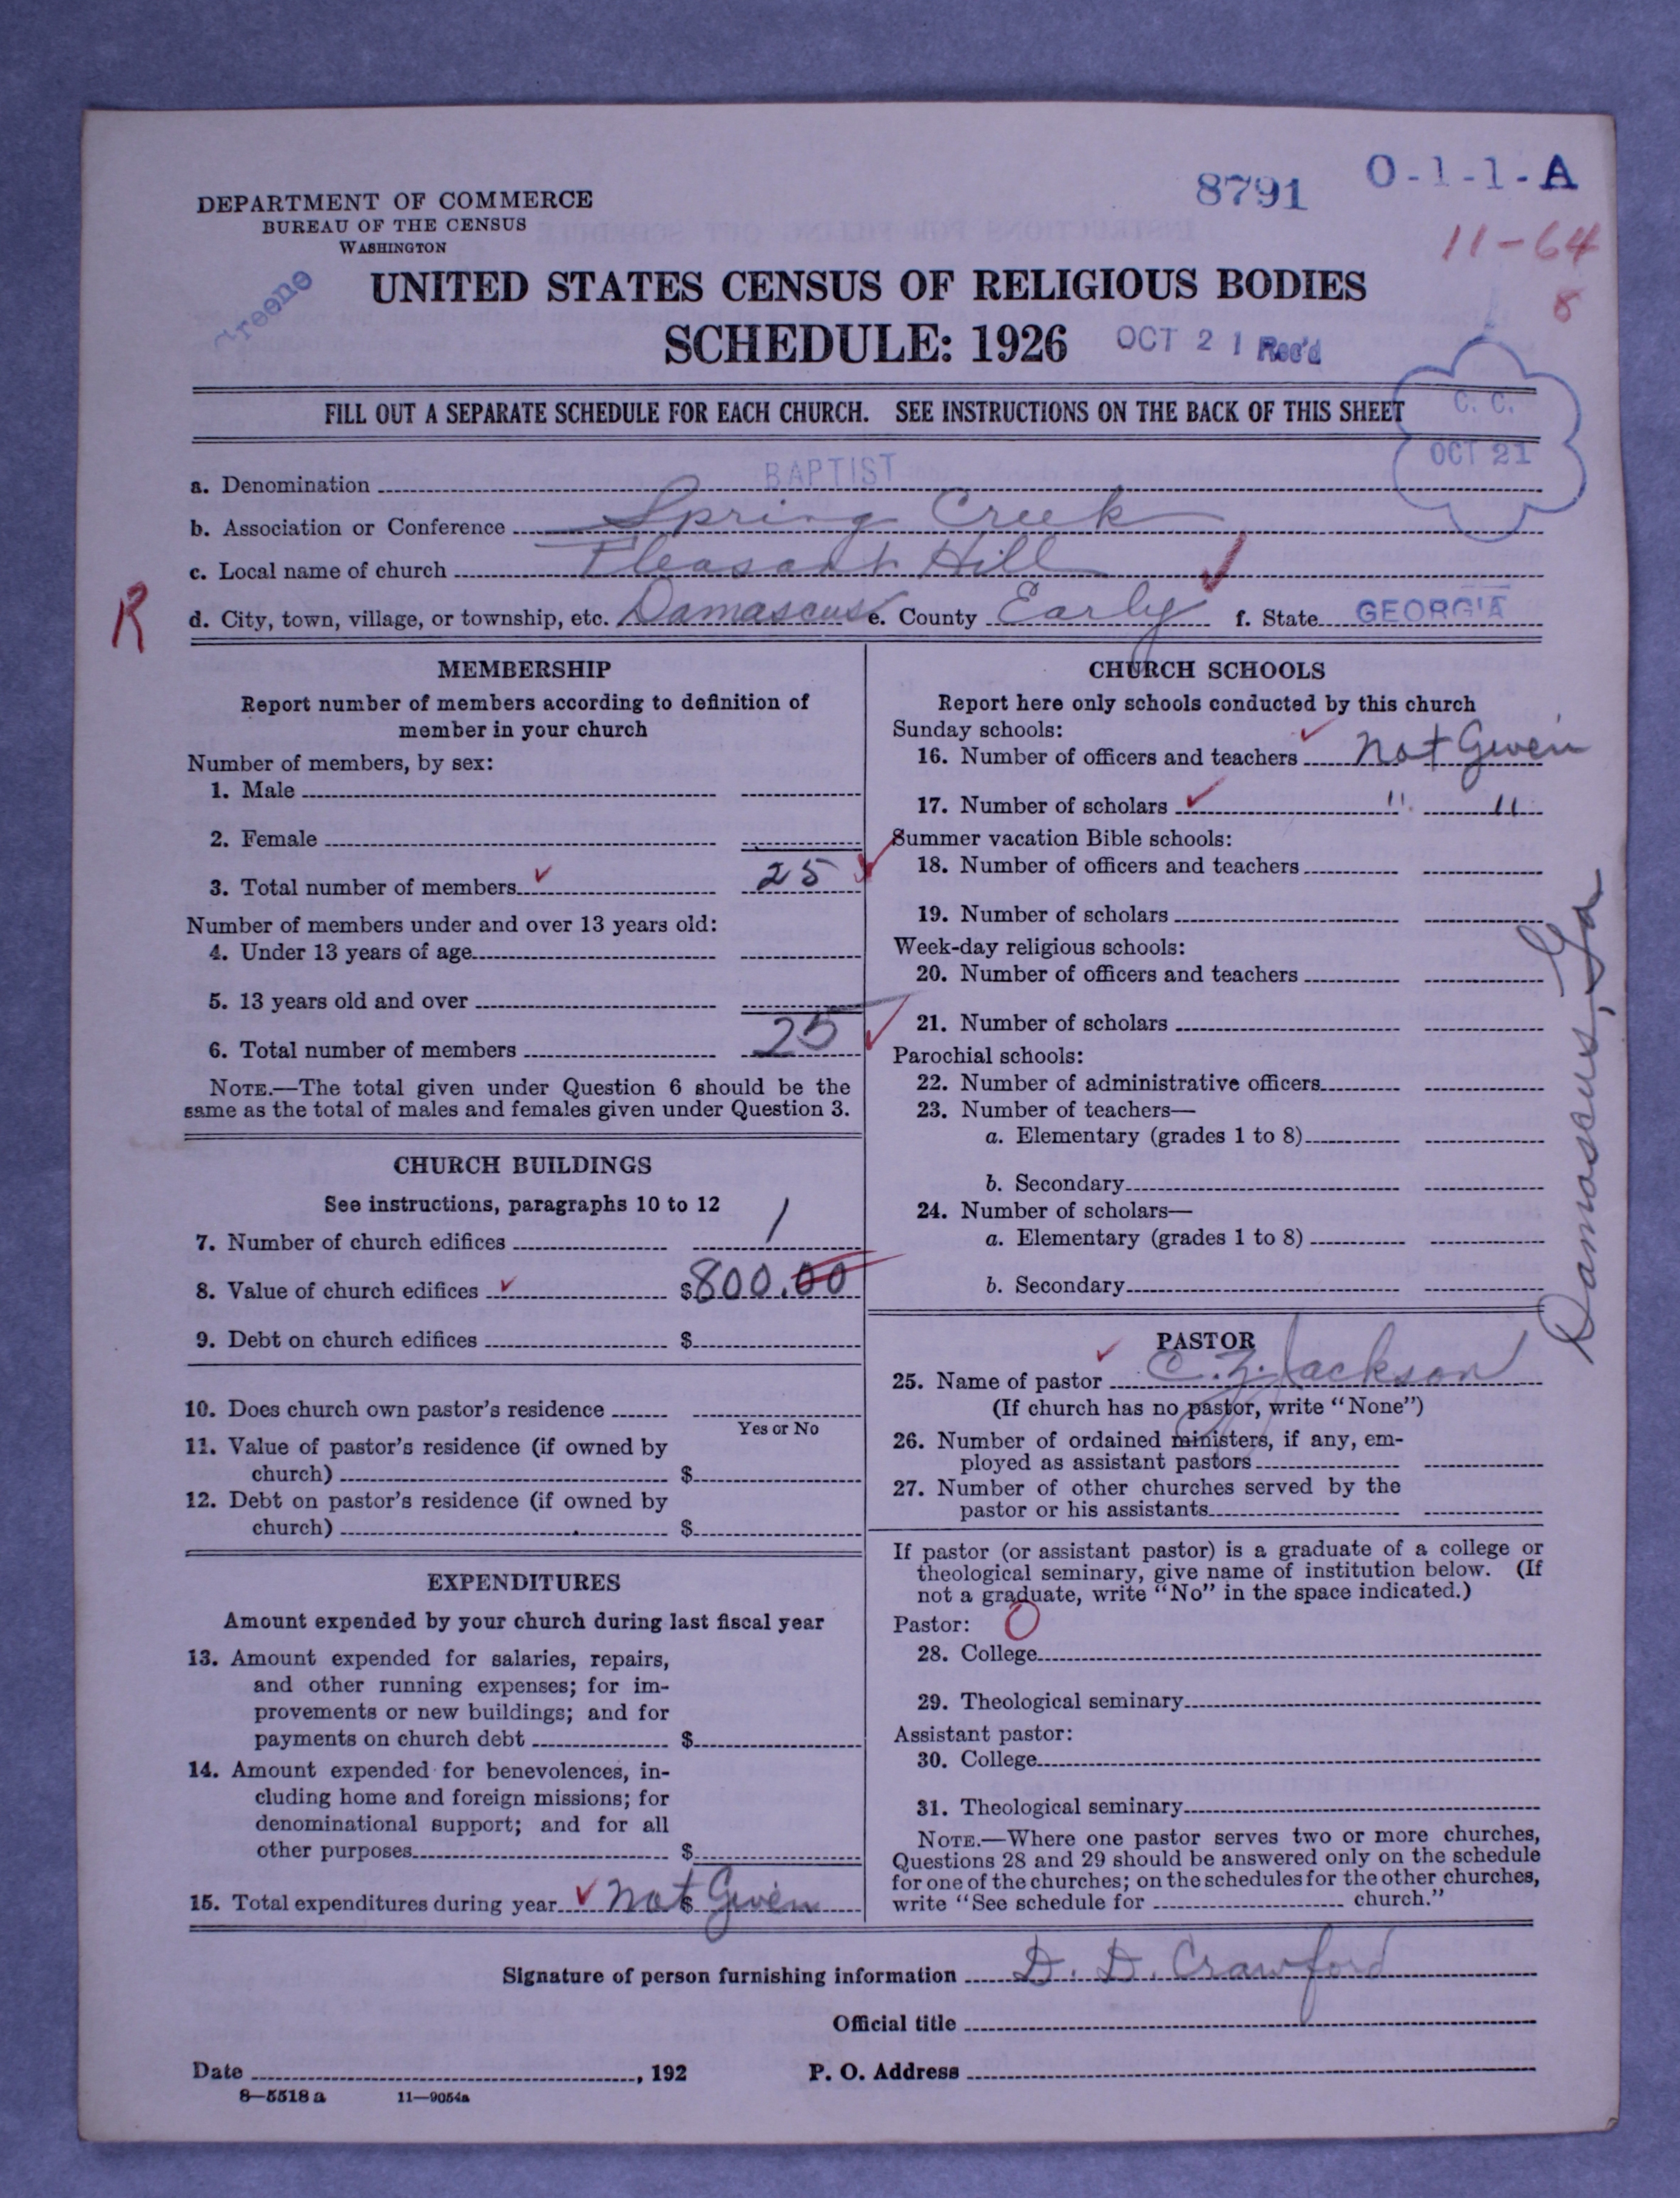 DEPARTMENT OF COMMERCE
BUREAU OF THE CENSUS
WASHINGTON
8791
O-1-1-A
11-64
8
Greene
UNITED STATES CENSUS OF RELIGIOUS BODIES
SCHEDULE: 1926
OCT 21 Rec'd
FILL OUT A SEPARATE SCHEDULE FOR EACH CHURCH. SEE INSTRUCTIONS ON THE BACK OF THIS SHEET
C. C.
OCT 21
a. Denomination BAPTIST
b. Association or Conference Spring Creek
c. Local name of church Pleasant Hill
R
d. City, town, village, or township, etc. Damascus e. County Early f. State GEORGIA
MEMBERSHIP
Report number of members according to definition of
member in your church
Number of members, by sex:
1. Male
2. Female
3. Total number of members 25
Number of members under and over 13 years old:
4. Under 13 years of age
5. 13 years old and over
6. Total number of members 25
NOTE.—The total given under Question 6 should be the
same as the total of males and females given under Question 3.
CHURCH BUILDINGS
See instructions, paragraphs 10 to 12
7. Number of church edifices 1
8. Value of church edifices $800.00
9. Debt on church edifices $
10. Does church own pastor's residence
Yes or No
11. Value of pastor's residence (if owned by
church) $
12. Debt on pastor's residence (if owned by
church) $
EXPENDITURES
Amount expended by your church during last fiscal year
13. Amount expended for salaries, repairs,
and other running expenses; for im-
provements or new buildings; and for
payments on church debt $
14. Amount expended for benevolences, in-
cluding home and foreign missions; for
denominational support; and for all
other purposes $
15. Total expenditures during year $ not Given
CHURCH SCHOOLS
Report here only schools conducted by this church
Sunday schools:
16. Number of officers and teachers not Given
17. Number of scholars " "
Summer vacation Bible schools:
18. Number of officers and teachers
19. Number of scholars
Week-day religious schools:
20. Number of officers and teachers
21. Number of scholars
Parochial schools:
22. Number of administrative officers
23. Number of teachers—
a. Elementary (grades 1 to 8)
b. Secondary
24. Number of scholars—
a. Elementary (grades 1 to 8)
b. Secondary
Damascus, Ga
PASTOR
25. Name of pastor C. Z. Jackson
(If church has no pastor, write "None")
26. Number of ordained ministers, if any, em-
ployed as assistant pastors
27. Number of other churches served by the
pastor or his assistants
If pastor (or assistant pastor) is a graduate of a college or
theological seminary, give name of institution below. (If
not a graduate, write "No" in the space indicated.)
Pastor: O
28. College
29. Theological seminary
Assistant pastor:
30. College
31. Theological seminary
NOTE.—Where one pastor serves two or more churches,
Questions 28 and 29 should be answered only on the schedule
for one of the churches; on the schedules for the other churches,
write "See schedule for church."
Signature of person furnishing information D. D. Crawford
Official title
Date , 192 P. O. Address
8—5518 a 11—9054a